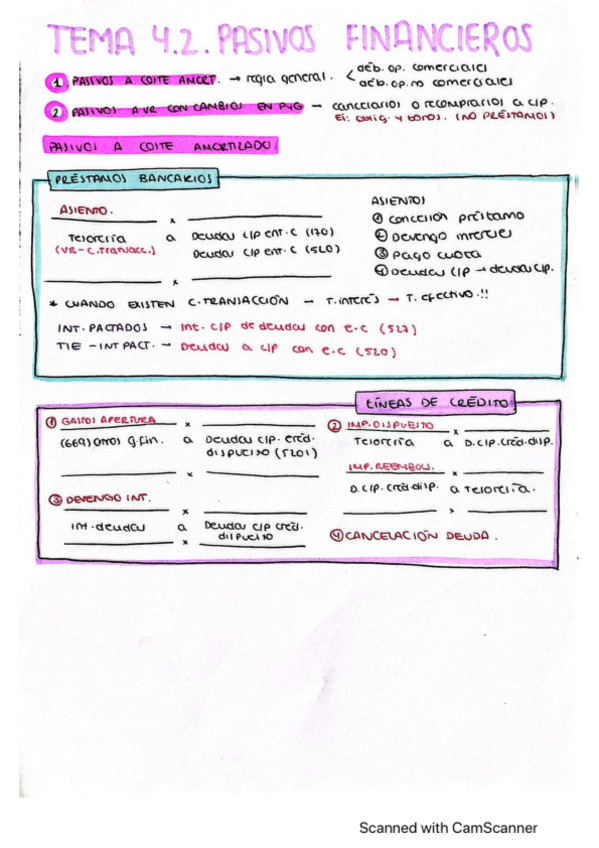 TEMA 4.2. PASIVOS FINANCIEROS
① PASIVOS A COSTE AMORT. → regla general. < déb. op. comerciales
déb. op. no comerciales
② PASIVOS A VR CON CAMBIOS EN PyG → cancelarlos o recomprarlos a c/p.
Ej: oblig. y bonos. (NO PRÉSTAMOS)
PASIVOS A COSTE AMORTIZADO
PRÉSTAMOS BANCARIOS
ASIENTO.
x
Tesorería a Deudas l/p ent. c (170)
(VR - C. Transacc.) Deudas c/p ent. c (520)
x
ASIENTOS
① Concesión préstamo
② Devengo intereses
③ Pago cuota
④ Deudas l/p → deudas c/p.
* CUANDO EXISTEN C. TRANSACCIÓN → T. interés → T. efectivo.!!
INT. PACTADOS → Int. c/p de deudas con e.c (527)
TIE - INT PACT. → Deudas a c/p con e.c (520)
LÍNEAS DE CRÉDITO
① GASTOS APERTURA
x
(669) Otros g. fin. a Deudas c/p. créd. dispuesto (5201)
x
② IMP. DISPUESTO
x
Tesorería a D. c/p. créd. disp.
IMP. REEMBOL.
x
D. c/p. créd. disp. a Tesorería.
x
③ DEVENGO INT.
x
Int. deudas a Deudas c/p créd. dispuesto
x
④ CANCELACIÓN DEUDA.
Scanned with CamScanner